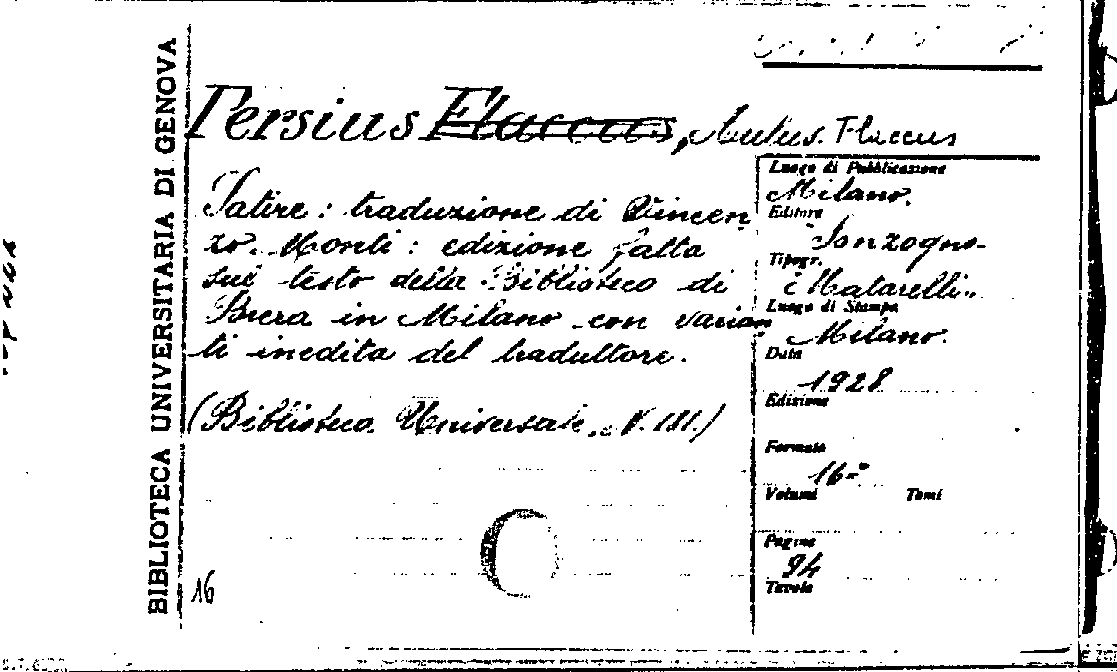 BIBLIOTECA UNIVERSITARIA DI GENOVA
Persius Flaccus, Aulus Flaccus
Satire: traduzione di Vincen
zo Monti: edizione fatta
sul testo della Biblioteca di
Brera in Milano con varian
ti inedita del traduttore.
(Biblioteca Universale, N. 111.)
16
Luogo di Pubblicazione
Milano.
Editore
Sonzogno
Tipogr.
Matarelli.
Luogo di Stampa
Milano.
Data
1928
Edizione
Formato
16-°
Volumi Tomi
Pagine
94
Tavole